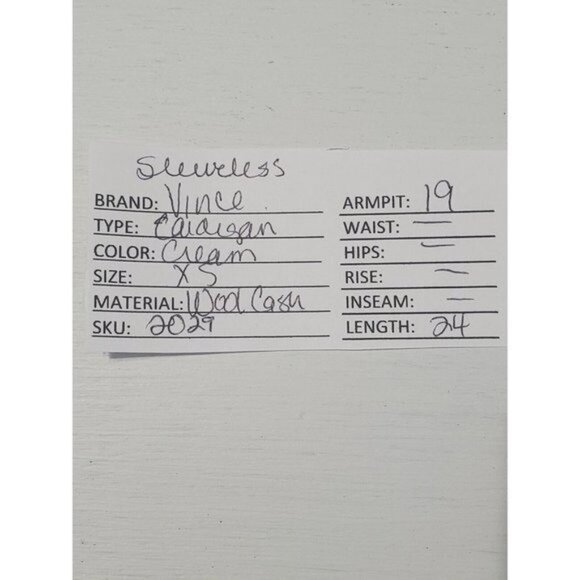 Sleeveless
BRAND: Vince
TYPE: Cardigan
COLOR: Cream
SIZE: XS
MATERIAL: Wool Cash
SKU: 2029
ARMPIT: 19
WAIST: —
HIPS: —
RISE: —
INSEAM: —
LENGTH: 24